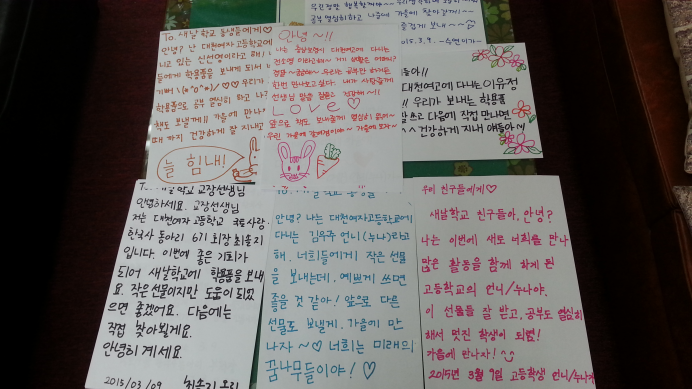 공부 열심히 하고 나중에 가을에 찾아갈게~
즐겁게 보내~
2015. 3. 9.
To. 새날 학교 동생들에게♡
안녕? 난 대천여자고등학교에
다니고 있는 신선영이라고 해!
들에게 학용품을 보내게 되서
기뻐 \(*^o^*)/ ♡♡ 우리가
학용품으로 공부 열심히 하고 나
책도 보낼게!! 가을에 만나
때 까지 건강하게 잘 지내고
늘 힘내!
안녕 ~!!
나는 충남보령에 대천여고에 다니는
이라고해~ 거기 생활은 어때?
정말 ~궁금해~ 우리는
한번 만나보고싶다. 내가 사랑을께
선생님 말씀 잘듣고 건강해~!!
Love♡
앞으로 책도 보내줄게 열심히
우린 가을에 가을에 보자~
들아!!
대천여고에 다니는 이유정
!! 우리가 보내는 학용품
잘 쓰고 다음에 직접 만나면
~^^ 건강하게 지내 얘들아~!
To. 새날학교 교장선생님
안녕하세요. 교장선생님
저는 대천여자 고등학교
한국사 동아리 6기 회장 최솔지
입니다. 이번에 좋은 기회가
되어 새날학교에 학용품을 보내
요. 작은 선물이지만 도움이 되었
으면 좋겠어요. 다음에는
직접 찾아뵐게요.
안녕히 계세요.
2015/03/09 최솔지 올림
To. 새날 학교 동생들
안녕? 나는 대천여자고등학교에
다니는 김유주 언니(누나)라고
해. 너희들에게 작은 선물
을 보내는데. 예쁘게 쓰면
좋을 것 같아! 앞으로 다른
선물도 보낼게. 가을에 만
나자~♡ 너희는 미래의
꿈나무들이야! ♡
우리 친구들에게♡
새날학교 친구들아, 안녕?
나는 이번에 새로 너희를 만나
많은 활동을 함께 하게 된
고등학교의 언니/누나야.
이 선물들 잘 받고, 공부도 열심히
해서 멋진 학생이 되렴!
가을에 만나자!
2015년 3월 9일 고등학생 언니/누나가